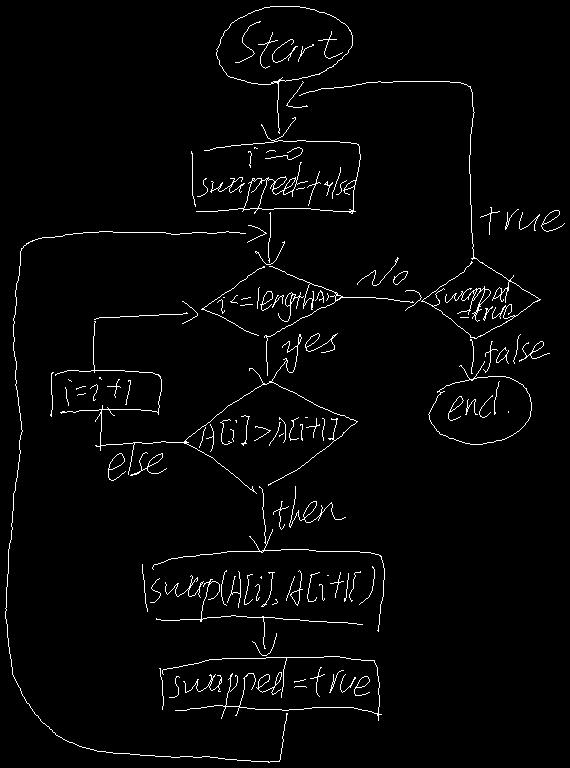 Start
i=0
swapped=false
true
No
swapped
=true
yes
false
i=i+1
end.
A[i]>A[i+1]
else
then
swap(A[i],A[i+1])
swapped=true